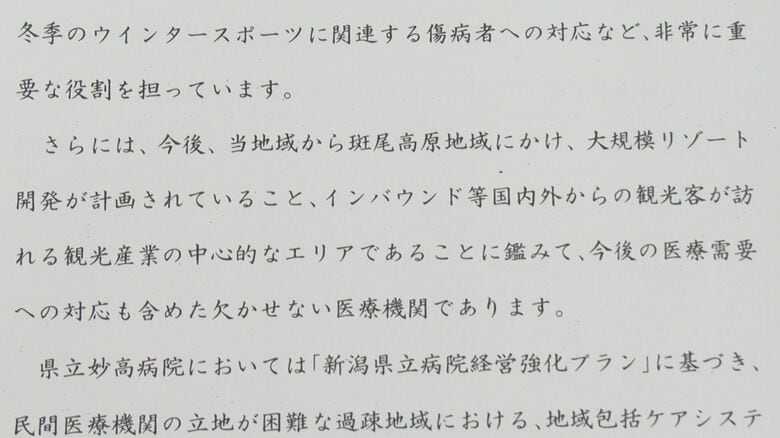 冬季のウインタースポーツに関連する傷病者への対応など、非常に重
要な役割を担っています。
さらには、今後、当地域から斑尾高原地域にかけ、大規模リゾート
開発が計画されていること、インバウンド等国内外からの観光客が訪
れる観光産業の中心的なエリアであることに鑑みて、今後の医療需要
への対応も含めた欠かせない医療機関であります。
県立妙高病院においては「新潟県立病院経営強化プラン」に基づき、
民間医療機関の立地が困難な過疎地域における、地域包括ケアシステ